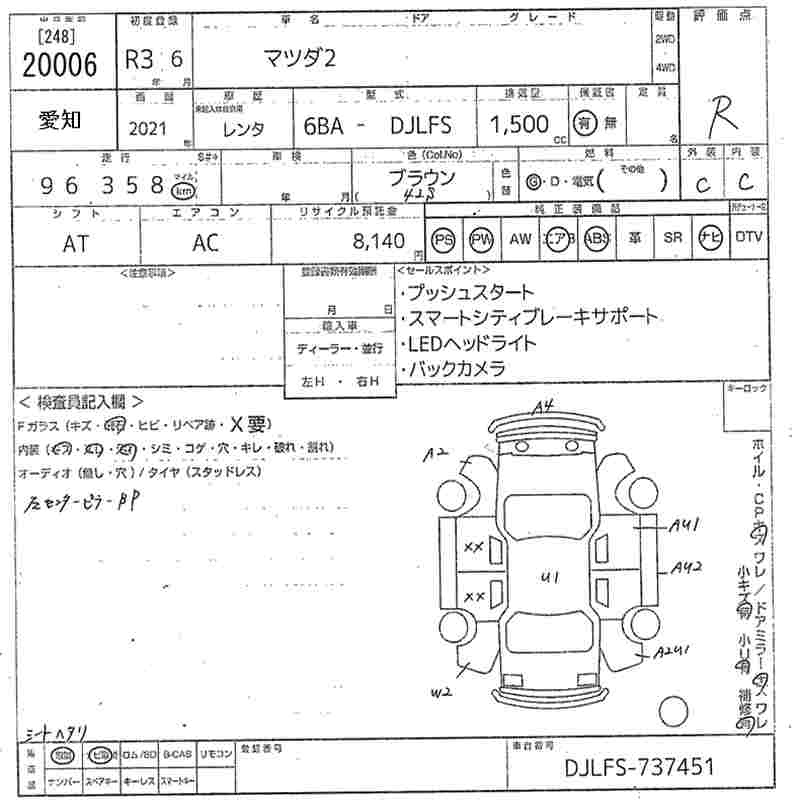 [248]
20006
初度登録
車名
ドア
グレード
駆動
評価点
R3 6
年 月
マツダ2
2WD
4WD
R
愛知
2021
年
レンタ
型式
6BA - DJLFS
排気量
1,500
cc
有 無
定員
名
走行
96 358
マイル
km
車検
年 月
色 (Col.No)
ブラウン
42S
色替
燃料
G・D・電気( その他 )
外装
C
内装
C
シフト
AT
エアコン
AC
リサイクル預託金
8,140
円
純正装備品
PS PW AW エアB ABS 革 SR ナビ DTV
<注意事項>
月 日
輸入車
ディーラー・並行
左H ・ 右H
<セールスポイント>
・プッシュスタート
・スマートシティブレーキサポート
・LEDヘッドライト
・バックカメラ
キーロック
< 検査員記入欄 >
Fガラス (キズ・ ・ヒビ・リペア跡・X要)
・シミ・コゲ・穴・キレ・破れ・割れ)
オーディオ (無し・穴) / タイヤ (スタッドレス)
左センターピラーBP
A4
A2
XX
XX
U1
AU1
AU2
A2U1
W2
ホイル・CPキズ ワレ / ドアミラーキズ ワレ
小キズ有 小U有 補修有
シートヘタリ
取説 ナビ取 ロム/SD B-CAS リモコン
ナンバー スペアキー キーレス スマートキー
登録番号
車台番号
DJLFS-737451